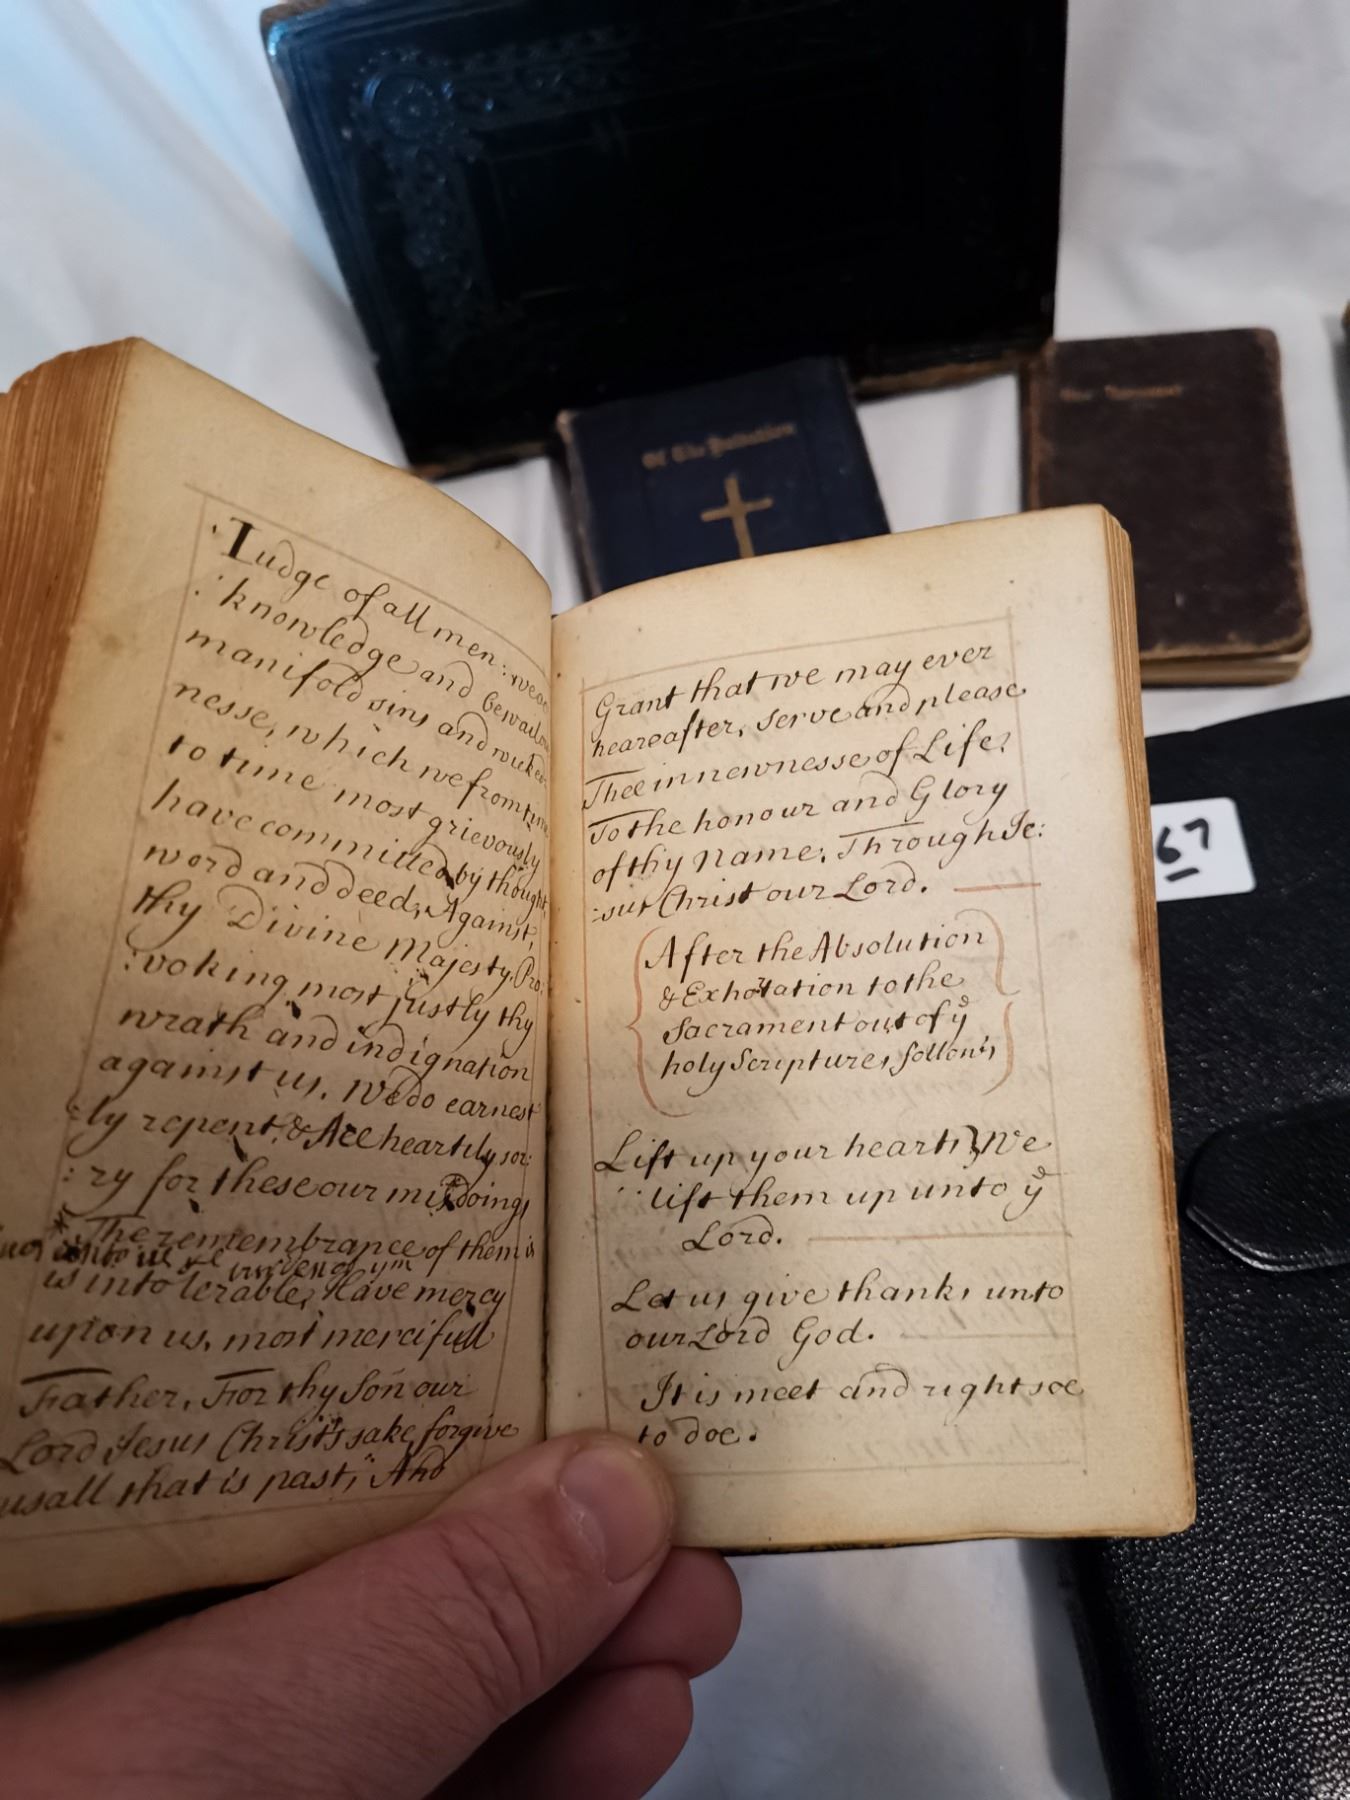 Of The Imitation
New Testament
67
Iudge of all men: we ac
: knowledge and bewaile
manifold sins and wicked
nesse, which we from time
to time most grievously
have committed by thought,
word and deed, Against
thy Divine Majesty. Pro:
:voking most justly thy
wrath and indignation
against us. We do earnest
:ly repent, & Are heartily sor:
:ry for these our misdoings
The remembrance of them is
unto us ye burden of ym
is intolerable, Have mercy
upon us, most mercifull
Father, For thy Son our
Lord Jesus Christ's sake, forgive
us all that is past, And
Grant that we may ever
heareafter, serve and please
Thee in newnesse of Life,
To the honour and Glory
of thy Name; Through Je:
:sus Christ our Lord.
After the Absolution
& Exhortation to the
Sacrament out of ye
holy Scriptures, follows,
Lift up your hearts} We
lift them up unto ye
Lord.
Let us give thanks unto
our Lord God.
It is meet and right soe
to doe.